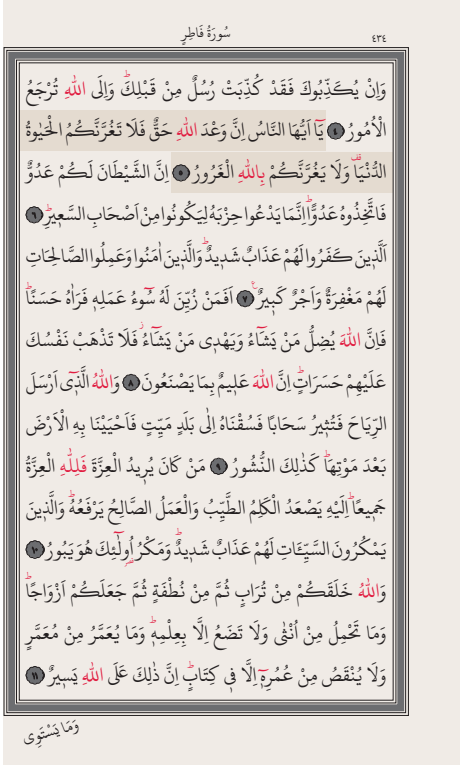 سُورَةُ فَاطِرٍ
٤٣٤
وَاِنْ يُكَذِّبُوكَ فَقَدْ كُذِّبَتْ رُسُلٌ مِنْ قَبْلِكَۜ وَاِلَى اللّٰهِ تُرْجَعُ
الْاُمُورُ ﴿٤﴾ يَٓا اَيُّهَا النَّاسُ اِنَّ وَعْدَ اللّٰهِ حَقٌّ فَلَا تَغُرَّنَّكُمُ الْحَيٰوةُ
الدُّنْيَا۠ وَلَا يَغُرَّنَّكُمْ بِاللّٰهِ الْغَرُورُ ﴿٥﴾ اِنَّ الشَّيْطَانَ لَكُمْ عَدُوٌّ
فَاتَّخِذُوهُ عَدُوًّاۜ اِنَّمَا يَدْعُوا حِزْبَهُ لِيَكُونُوا مِنْ اَصْحَابِ السَّعٖيرِۜ ﴿٦﴾
اَلَّذٖينَ كَفَرُوا لَهُمْ عَذَابٌ شَدٖيدٌۜ وَالَّذٖينَ اٰمَنُوا وَعَمِلُوا الصَّالِحَاتِ
لَهُمْ مَغْفِرَةٌ وَاَجْرٌ كَبٖيرٌ۟ ﴿٧﴾ اَفَمَنْ زُيِّنَ لَهُ سُٓوءُ عَمَلِهٖ فَرَاٰهُ حَسَنًاۜ
فَاِنَّ اللّٰهَ يُضِلُّ مَنْ يَشَٓاءُ وَيَهْدٖي مَنْ يَشَٓاءُۘ فَلَا تَذْهَبْ نَفْسُكَ
عَلَيْهِمْ حَسَرَاتٍۜ اِنَّ اللّٰهَ عَلٖيمٌ بِمَا يَصْنَعُونَ ﴿٨﴾ وَاللّٰهُ الَّذٖٓي اَرْسَلَ
الرِّيَاحَ فَتُثٖيرُ سَحَابًا فَسُقْنَاهُ اِلٰى بَلَدٍ مَيِّتٍ فَاَحْيَيْنَا بِهِ الْاَرْضَ
بَعْدَ مَوْتِهَاۜ كَذٰلِكَ النُّشُورُ ﴿٩﴾ مَنْ كَانَ يُرٖيدُ الْعِزَّةَ فَلِلّٰهِ الْعِزَّةُ
جَمٖيعًاۜ اِلَيْهِ يَصْعَدُ الْكَلِمُ الطَّيِّبُ وَالْعَمَلُ الصَّالِحُ يَرْفَعُهُۜ وَالَّذٖينَ
يَمْكُرُونَ السَّيِّـَٔاتِ لَهُمْ عَذَابٌ شَدٖيدٌۜ وَمَكْرُ اُو۬لٰٓئِكَ هُوَ يَبُورُ ﴿١٠﴾
وَاللّٰهُ خَلَقَكُمْ مِنْ تُرَابٍ ثُمَّ مِنْ نُطْفَةٍ ثُمَّ جَعَلَكُمْ اَزْوَاجًاۜ
وَمَا تَحْمِلُ مِنْ اُنْثٰى وَلَا تَضَعُ اِلَّا بِعِلْمِهٖۜ وَمَا يُعَمَّرُ مِنْ مُعَمَّرٍ
وَلَا يُنْقَصُ مِنْ عُمُرِهٖٓ اِلَّا فٖي كِتَابٍۜ اِنَّ ذٰلِكَ عَلَى اللّٰهِ يَسٖيرٌ ﴿١١﴾
وَمَا يَسْتَوِي